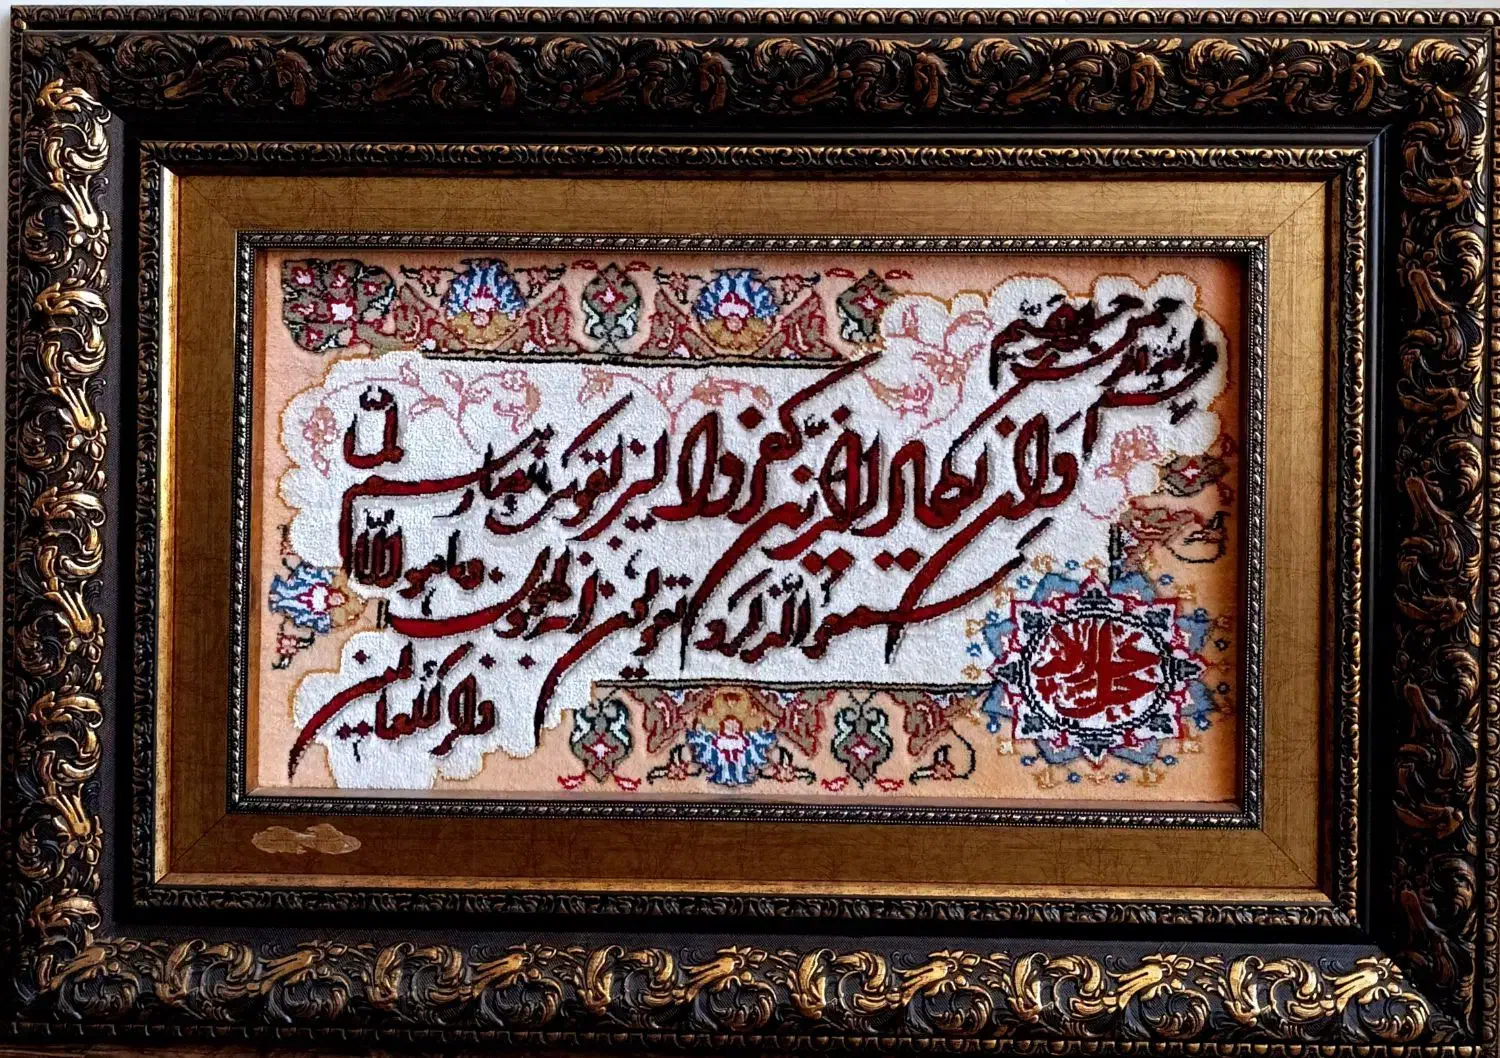 بسم الله الرحمن الرحيم
وان يكاد الذين كفروا ليزلقونك بابصارهم لما
سمعوا الذكر ويقولون انه لمجنون وما هو الا
ذكر للعالمين